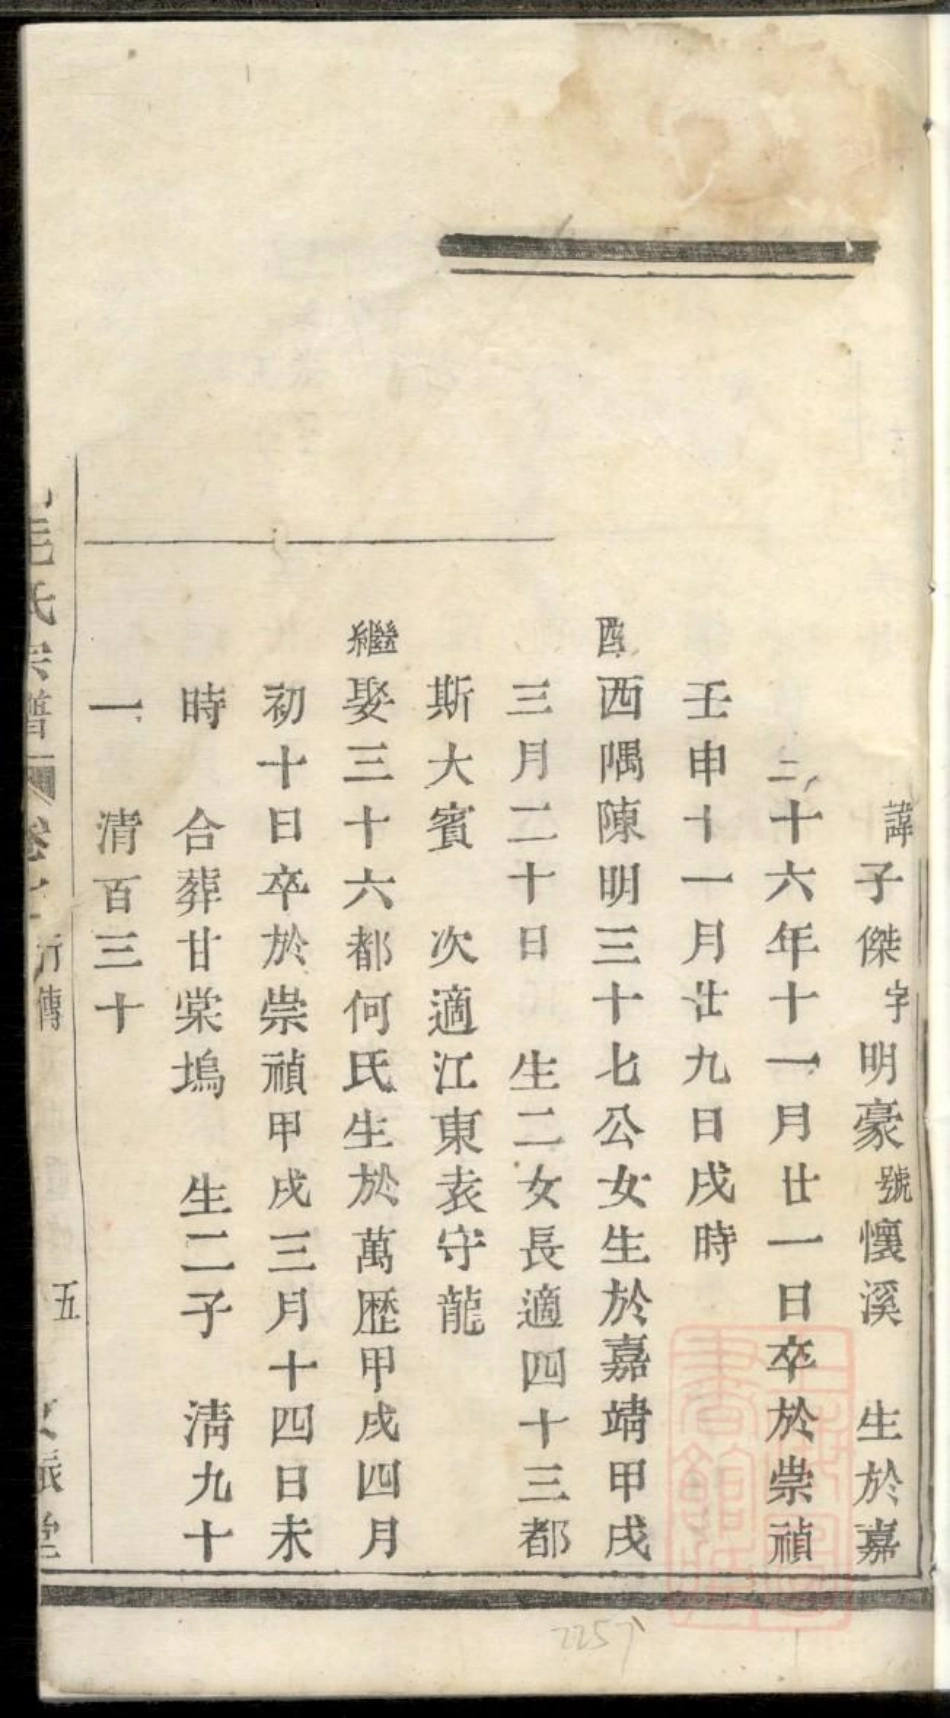 諱子傑字明豪號懷溪 生於嘉
二十六年十一月廿一日卒於崇禎
壬申十一月廿九日戌時
西隅陳明三十七公女生於嘉靖甲戌
三月二十日 生二女長適四十三都
斯大賓 次適江東袁守龍
繼娶三十六都何氏生於萬歷甲戌四月
初十日卒於崇禎甲戌三月十四日未
時 合葬甘棠塢 生二子 清九十
一 清百三十
毛氏宗譜 卷 行傳 五
2257